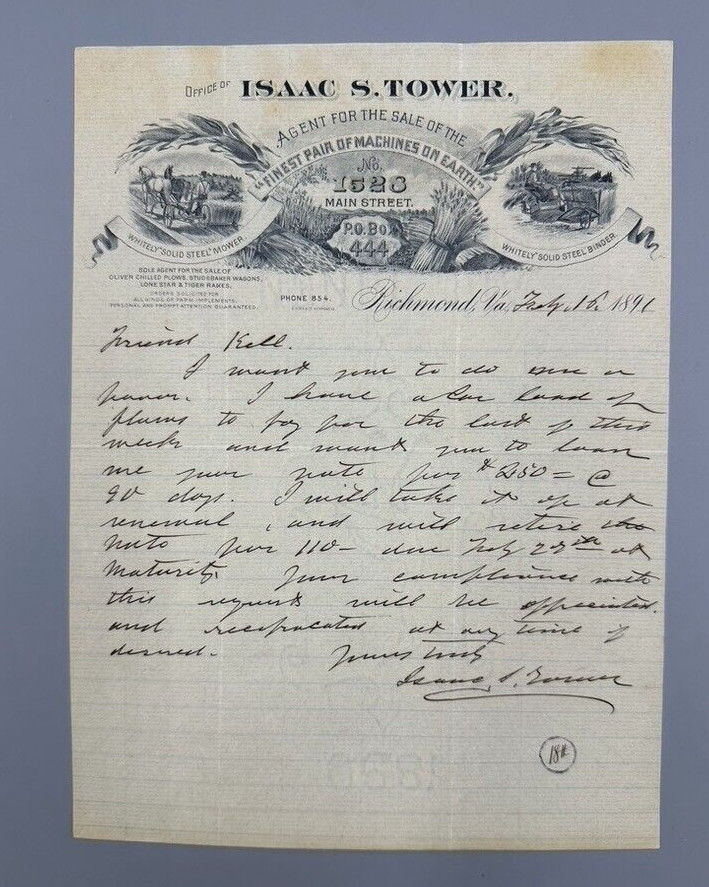 OFFICE OF ISAAC S. TOWER.
AGENT FOR THE SALE OF THE
"FINEST PAIR OF MACHINES ON EARTH."
No.
1528
MAIN STREET.
P.O. Box
444
WHITELY "SOLID STEEL" MOWER
WHITELY "SOLID STEEL" BINDER
SOLE AGENT FOR THE SALE OF
OLIVER CHILLED PLOWS, STUDEBAKER WAGONS,
LONE STAR & TIGER RAKES.
ORDERS SOLICITED FOR
ALL KINDS OF FARM IMPLEMENTS.
PERSONAL AND PROMPT ATTENTION GUARANTEED.
PHONE 854.
Richmond, Va. Feby. 16. 1891
Friend Kell.
I want you to do me a
favor. I have a car load of
plows to pay for the last of this
week and want you to loan
me your note for $250= @
90 days. I will take it up at
renewal, and will retire the
note for 110- due Feby 27th at
maturity. Your compliance with
this request will be appreciated.
and reciprocated at any time if
desired.
Yours truly
Isaac S. Tower
18#